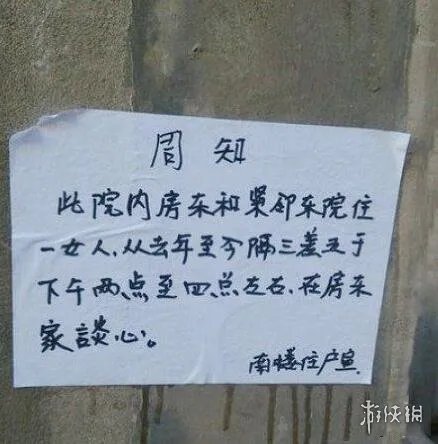 周知
此院内房东和紧邻东院住
一女人，从去年至今隔三差五于
下午两点至四点左右，在房东
家談心。
南楼住户宣
游侠网